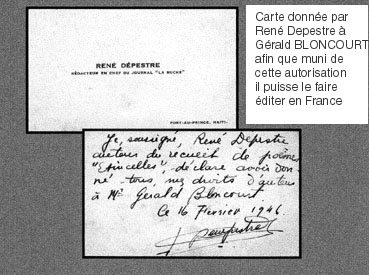 RENÉ DÉPESTRE
RÉDACTEUR EN CHEF DU JOURNAL "LA RUCHE"
PORT-AU-PRINCE, HAITI.
Carte donnée par
René Depestre à
Gérald BLONCOURT
afin que muni de
cette autorisation
il puisse le faire
éditer en France
Je, soussigné, René Depestre
auteur du recueil de poèmes
"Etincelles", déclare avoir don-
né tous mes droits d'auteur
à Mr Gerald Bloncourt.
le 16 Février 1946
R Depestre